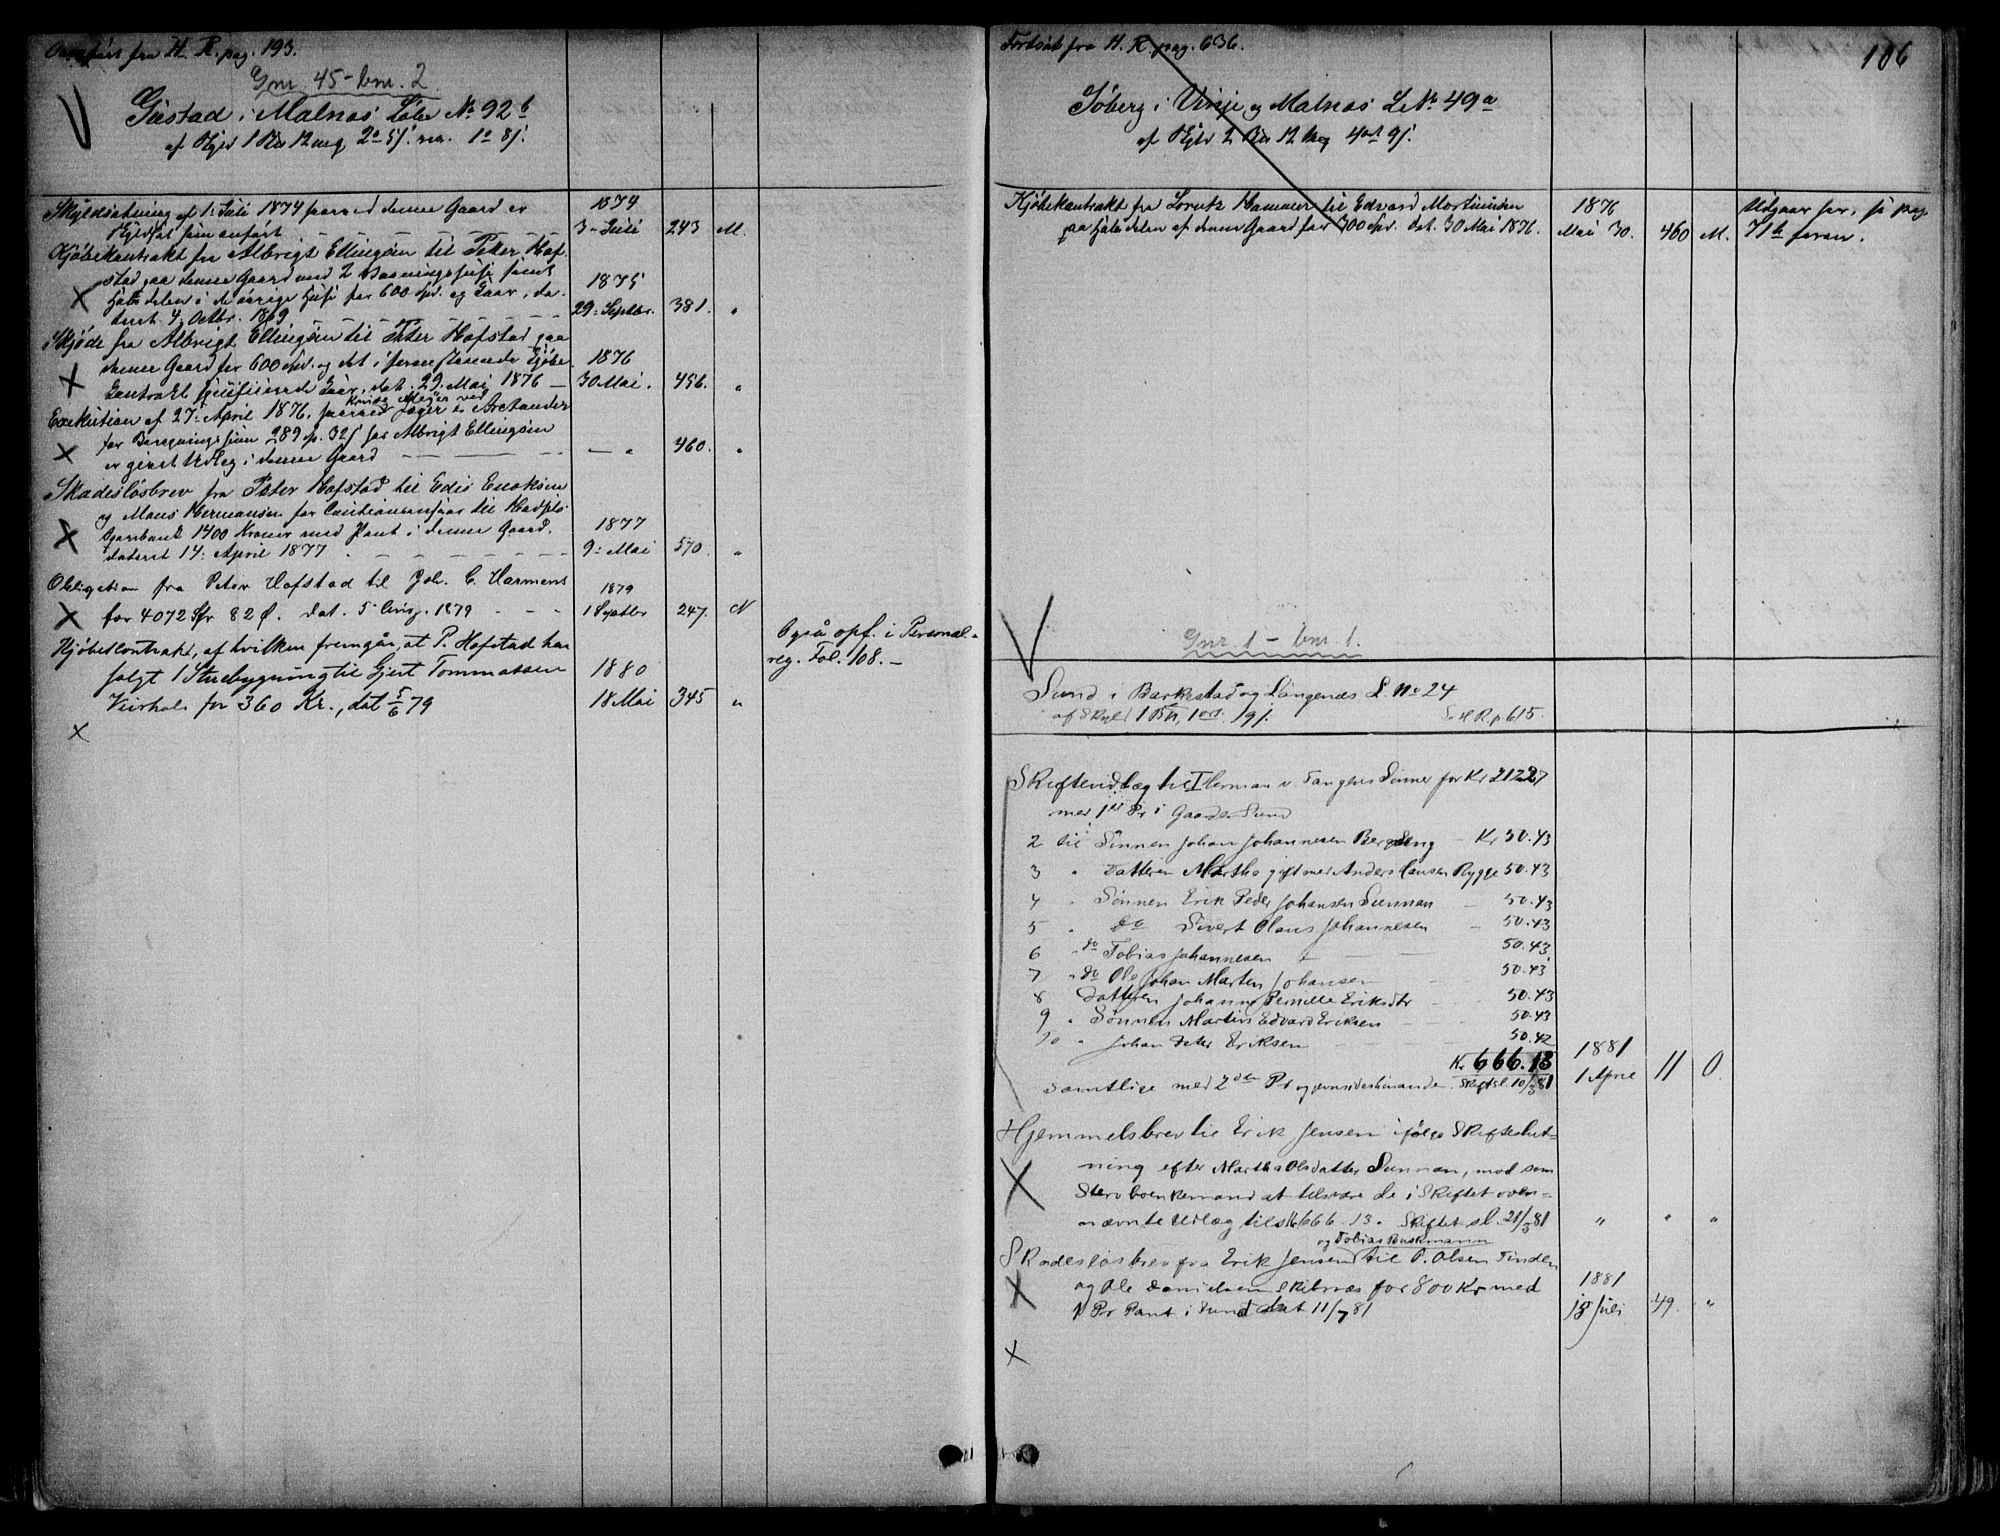 Overført fra H. R. pag. 193.
Gnr. 45 - bnr. 2.
Gustad i Malnæs Løbe No 92 b
af Skyld 1 Bis 12 mg 2 5 ſ. 1 8 ſ.
Skyldsætning af 1: Juli 1874 hvorved denne Gaard er
skyldsat som anført 1874 3 Juli 243 M.
Kjøbekontrakt fra Albrigt Ellingsen til Peter Hof-
stad paa denne Gaard med 2 samt 1875
Halvdelen i de øvrige Huse for 600 Spd. og Kaar, da-
teret 4. Octbr. 1869 29. Septbr. 381. "
Skjøde fra Albrigt Ellingsen til Peter Hofstad paa
denne Gaard for 600 Spd. og det i foranstaaende Kjøbe- 1876
kontrakt Kaar, dat. 29. Mai 1876 - 30 Mai. 456. "
Exekution af 27: April 1876, hvorved Jæger & Arctander
for 289 Sp. 32 ſ hos Albrigt Ellingsen
er givet Udlæg i denne Gaard — " 460. "
Skadesløsbrev fra Peter Hofstad til Edis Enoksen
og Mons Hermansen for Cautionsansvar til Hadsels
Sparebank 1400 Kroner med Pant i denne Gaard, 1877
dateret 14: April 1877 9: Mai 570. "
Obligation fra Peter Hofstad til Joh. C. Harmens 1879
for 4072 Kr 82 Ø. dat. 5 Aug. 1879 1 Septbr 247. N
Også opf. i Personal-
reg. Fol. 108. -
Kjøbekontrakt, af hvilken fremgår, at P. Hofstad har
solgt 1 Stuebygning til Gjert Tommassen 1880
for 360 Kr., dat 5/6 79 18 Mai 345 "
Fortsat fra H. R. pag. 636.
106
Søberg i Vinje og Malnæs L. No 49 a
af Skyld 2 Bis 12 Mg 4 ort 9 ſ.
Kjøbekontrakt fra Lorentz Hammer til Edvard Mortinusen 1876 Udgaar her, se pag.
paa Halvdelen af denne Gaard for 300 Spd. Dat. 30 Mai 1876. Mai 30. 460 M. 71 b foran.
Gnr. 1 - bnr. 1.
Sund i Barkestad og Langenæs L. No 24
af Skyld 1 ort 19 ſ. Se H R. p 615.
Skifteudlæg til 1 Herman v Tangens Sønner for Kr 212 27
med 1ste Pr i Gaarden Sund
2 til Sønnen Johan Johannesen Bergseng - Kr 50.43
3 " Datteren Martha gift med Anders Hansen Rygge 50.43
4 " Sønnen Erik Peder Johansen Sunnan - 50.43
5 " do Sivert Olaus Johannesen - 50.43
6 " do Tobias Johannesen - 50.43
7 " do Ole Johan Marten Johansen 50.43
8 Datteren Johanna Pernille Eriksdtr 50.43
9 " Sønnen Martin Edvard Eriksen 50.43
10 " Johan Peter Eriksen 50.42
Kr 666.13 1881
Samtlige med 2den Pr og jevnsideshinanden. Skiftsl. 10/3 81 1 April 11 O.
Hjemmelsbrev til Erik Jensen ifølge Skifteslut-
ning efter Martha Olsdatter Sunnan, mod som
Stervboenkemand at tilsvare de i Skiftet oven-
nævnte Udlæg tils 666.13. Skiftet sl. 21/3 81 " " "
og Tobias Buskmann
Skadesløsbrev fra Erik Jensen til P. Olsen Tinden
og Ole Danielsen Skibnæs for 800 Kr med 1881
1 Pr Pant i Sund dat 11/7 81 18 Juli 49. "